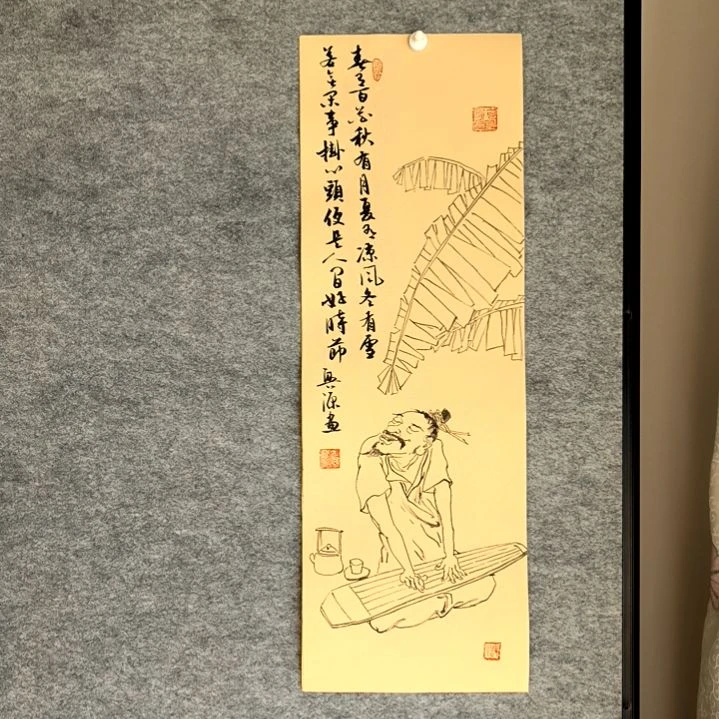 春有百花秋有月夏有凉风冬有雪
若无闲事掛心頭便是人间好時節
兴源画